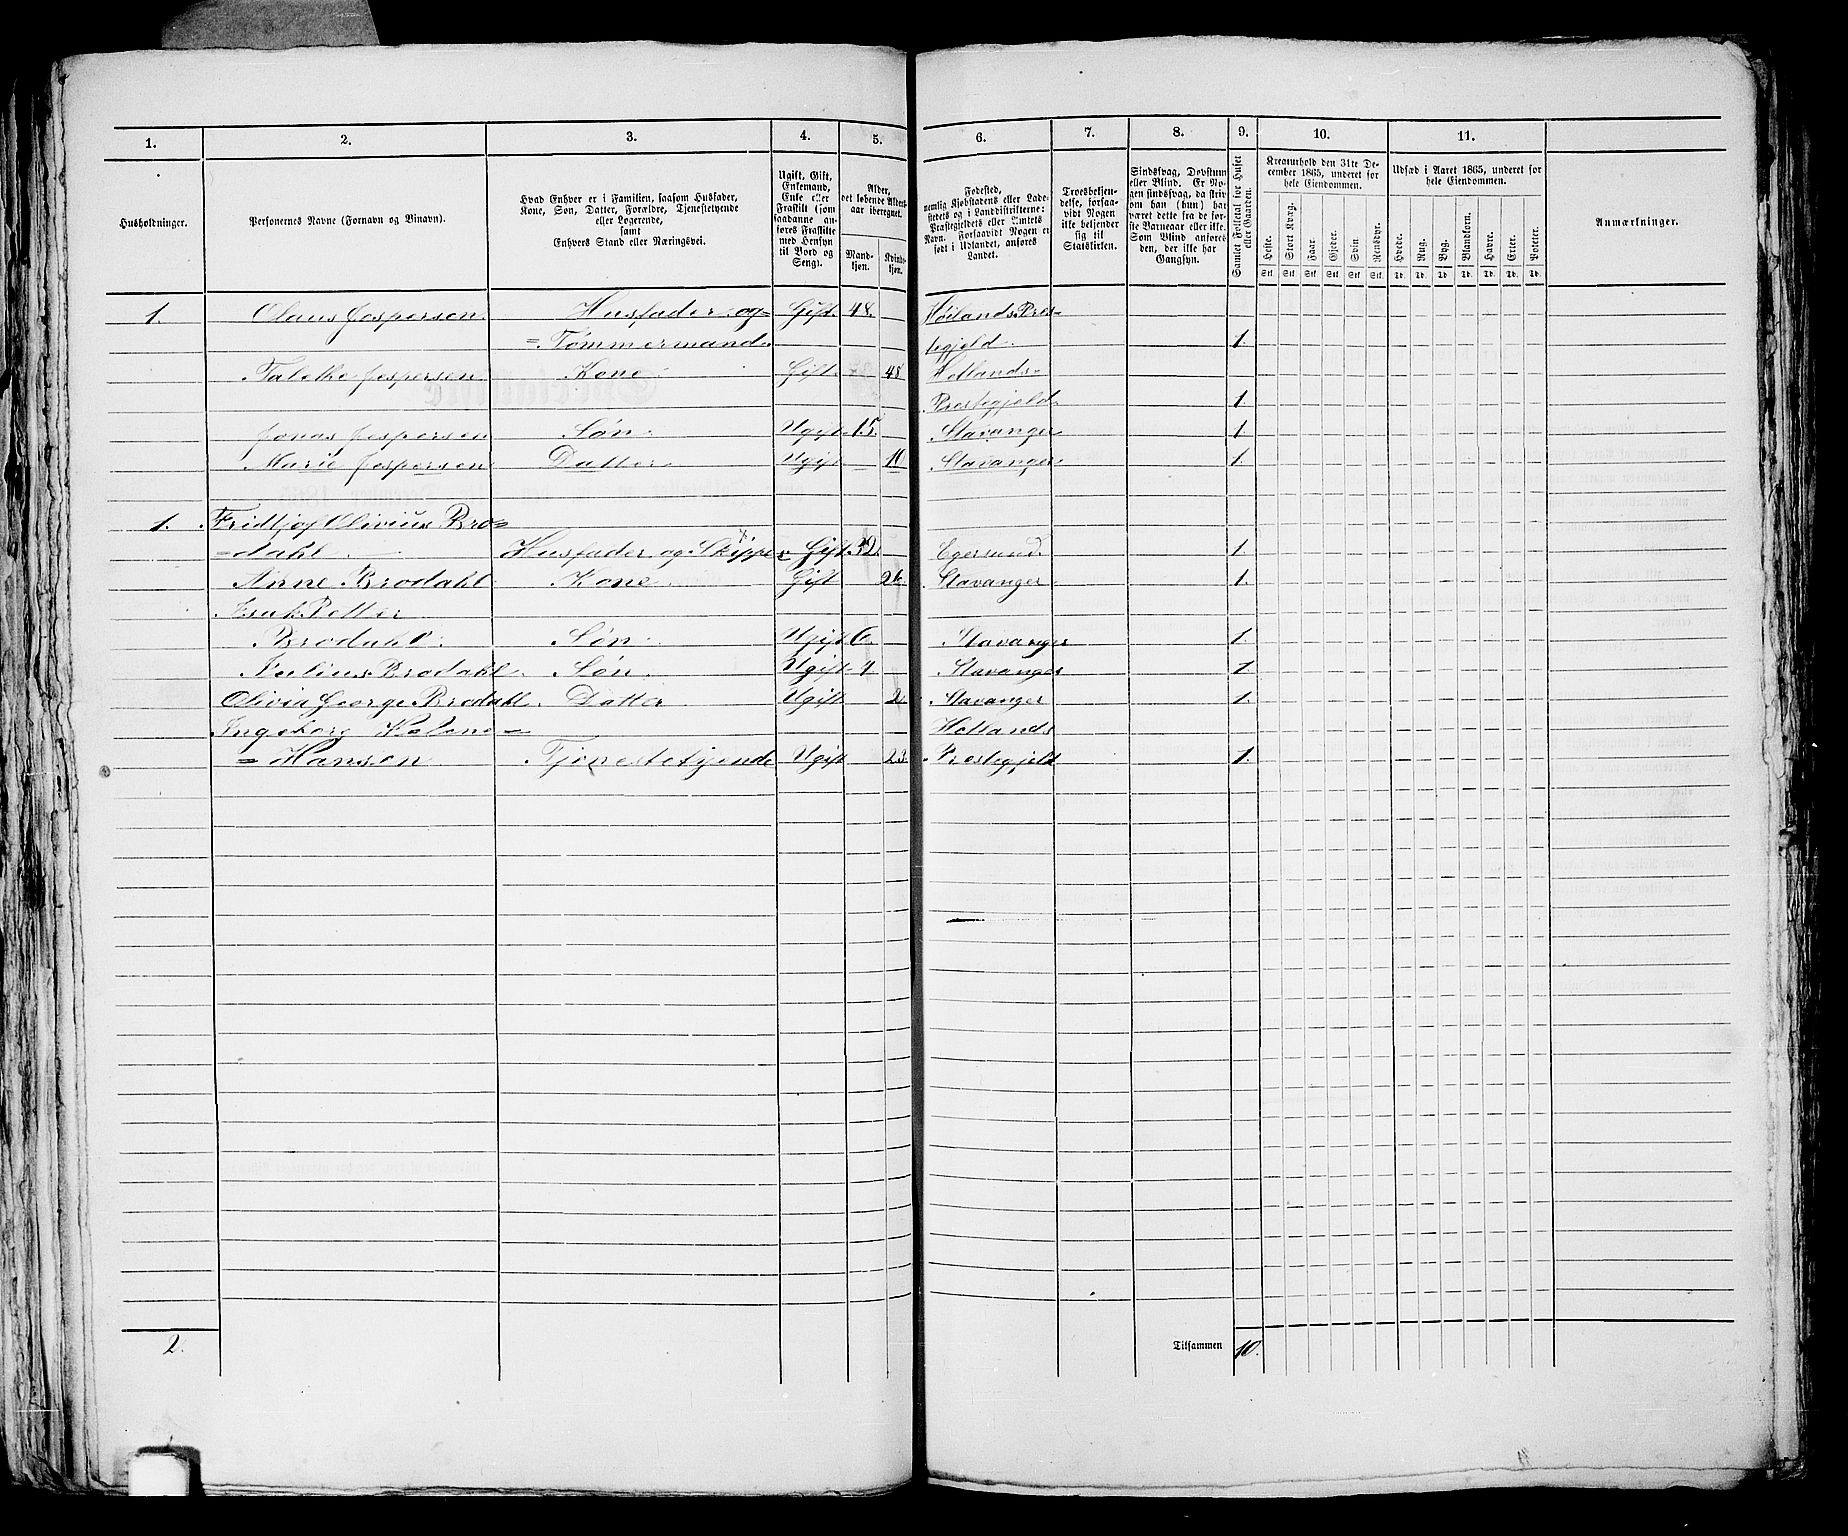 1. 2. 3. 4. 5. 6. 7. 8. 9. 10. 11.
Husholdninger.
Personernes Navne (Fornavn og Binavn).
Hvad Enhver er i Familien, saasom Husfader,
Kone, Søn, Datter, Forældre, Tjenestetyende
eller Logerende,
samt
Enhvers Stand eller Næringsvei.
Ugift, Gift,
Enkemand,
Enke eller
Fraskilt (som
saadanne an-
føres Fraskilte
med Hensyn
til Bord og
Seng).
Alder,
det løbende Alders-
aar iberegnet.
Mand-
kjøn.
Kvinde-
kjøn.
Fødested,
nemlig Kjøbstadens eller Lade-
stedets og i Landdistrikterne:
Præstegjeldets eller Amtets
Navn. Forsaavidt Nogen er
født i Udlandet, anføres
Landet.
Troesbekjen-
delse, forsaa-
vidt Nogen
ikke bekjender
sig til
Statskirken.
Sindssvag, Døvstum
eller Blind. Er No-
gen sindssvag, da skriv
om han (hun) har
været dette fra de før-
ste Barneaar eller ikke.
Som Blind anføres
den, der ikke har
Gangsyn.
Samlet Folketal for Huset
eller Gaarden.
Kreaturhold den 31te De-
cember 1865, underet for
hele Eiendommen.
Heste. Stort Kvæg. Faar. Gjeder. Svin. Rensdyr.
Stk. Stk. Stk. Stk. Stk. Stk.
Udsæd i Aaret 1865, underet for
hele Eiendommen.
Hvede. Rug. Byg. Blandkorn. Havre. Erter. Poteter.
Td. Td. Td. Td. Td. Td. Td.
Anmærkninger.
1. Olaus Jespersen Husfader og= Gift 48. Høilands Pres-
= Tømmermand. tegjeld. 1.
Taletke Jespersen Kone Gift 48 Hetlands-
Prestegjeld 1.
Jonas Jespersen Søn. Ugift 15. Stavanger 1.
Marie Jespersen Datter Ugift 10 Stavanger 1.
1. Fridtjof Olivius Bro=
=dahl Husfader og Skipper Gift 32. Egersund. 1.
Anne Brodahl Kone Gift 26 Stavanger 1.
Petter
Brodahl. Søn. Ugift 6. Stavanger 1.
Julius Brodahl Søn. Ugift 4 Stavanger 1.
Olivia George Brodahl. Datter Ugift 2 Stavanger 1.
Ingeborg =
Hetlands
= Hansen Tjenestetyende Ugift 23. Prestegjeld 1.
2. Tilsammen 10.